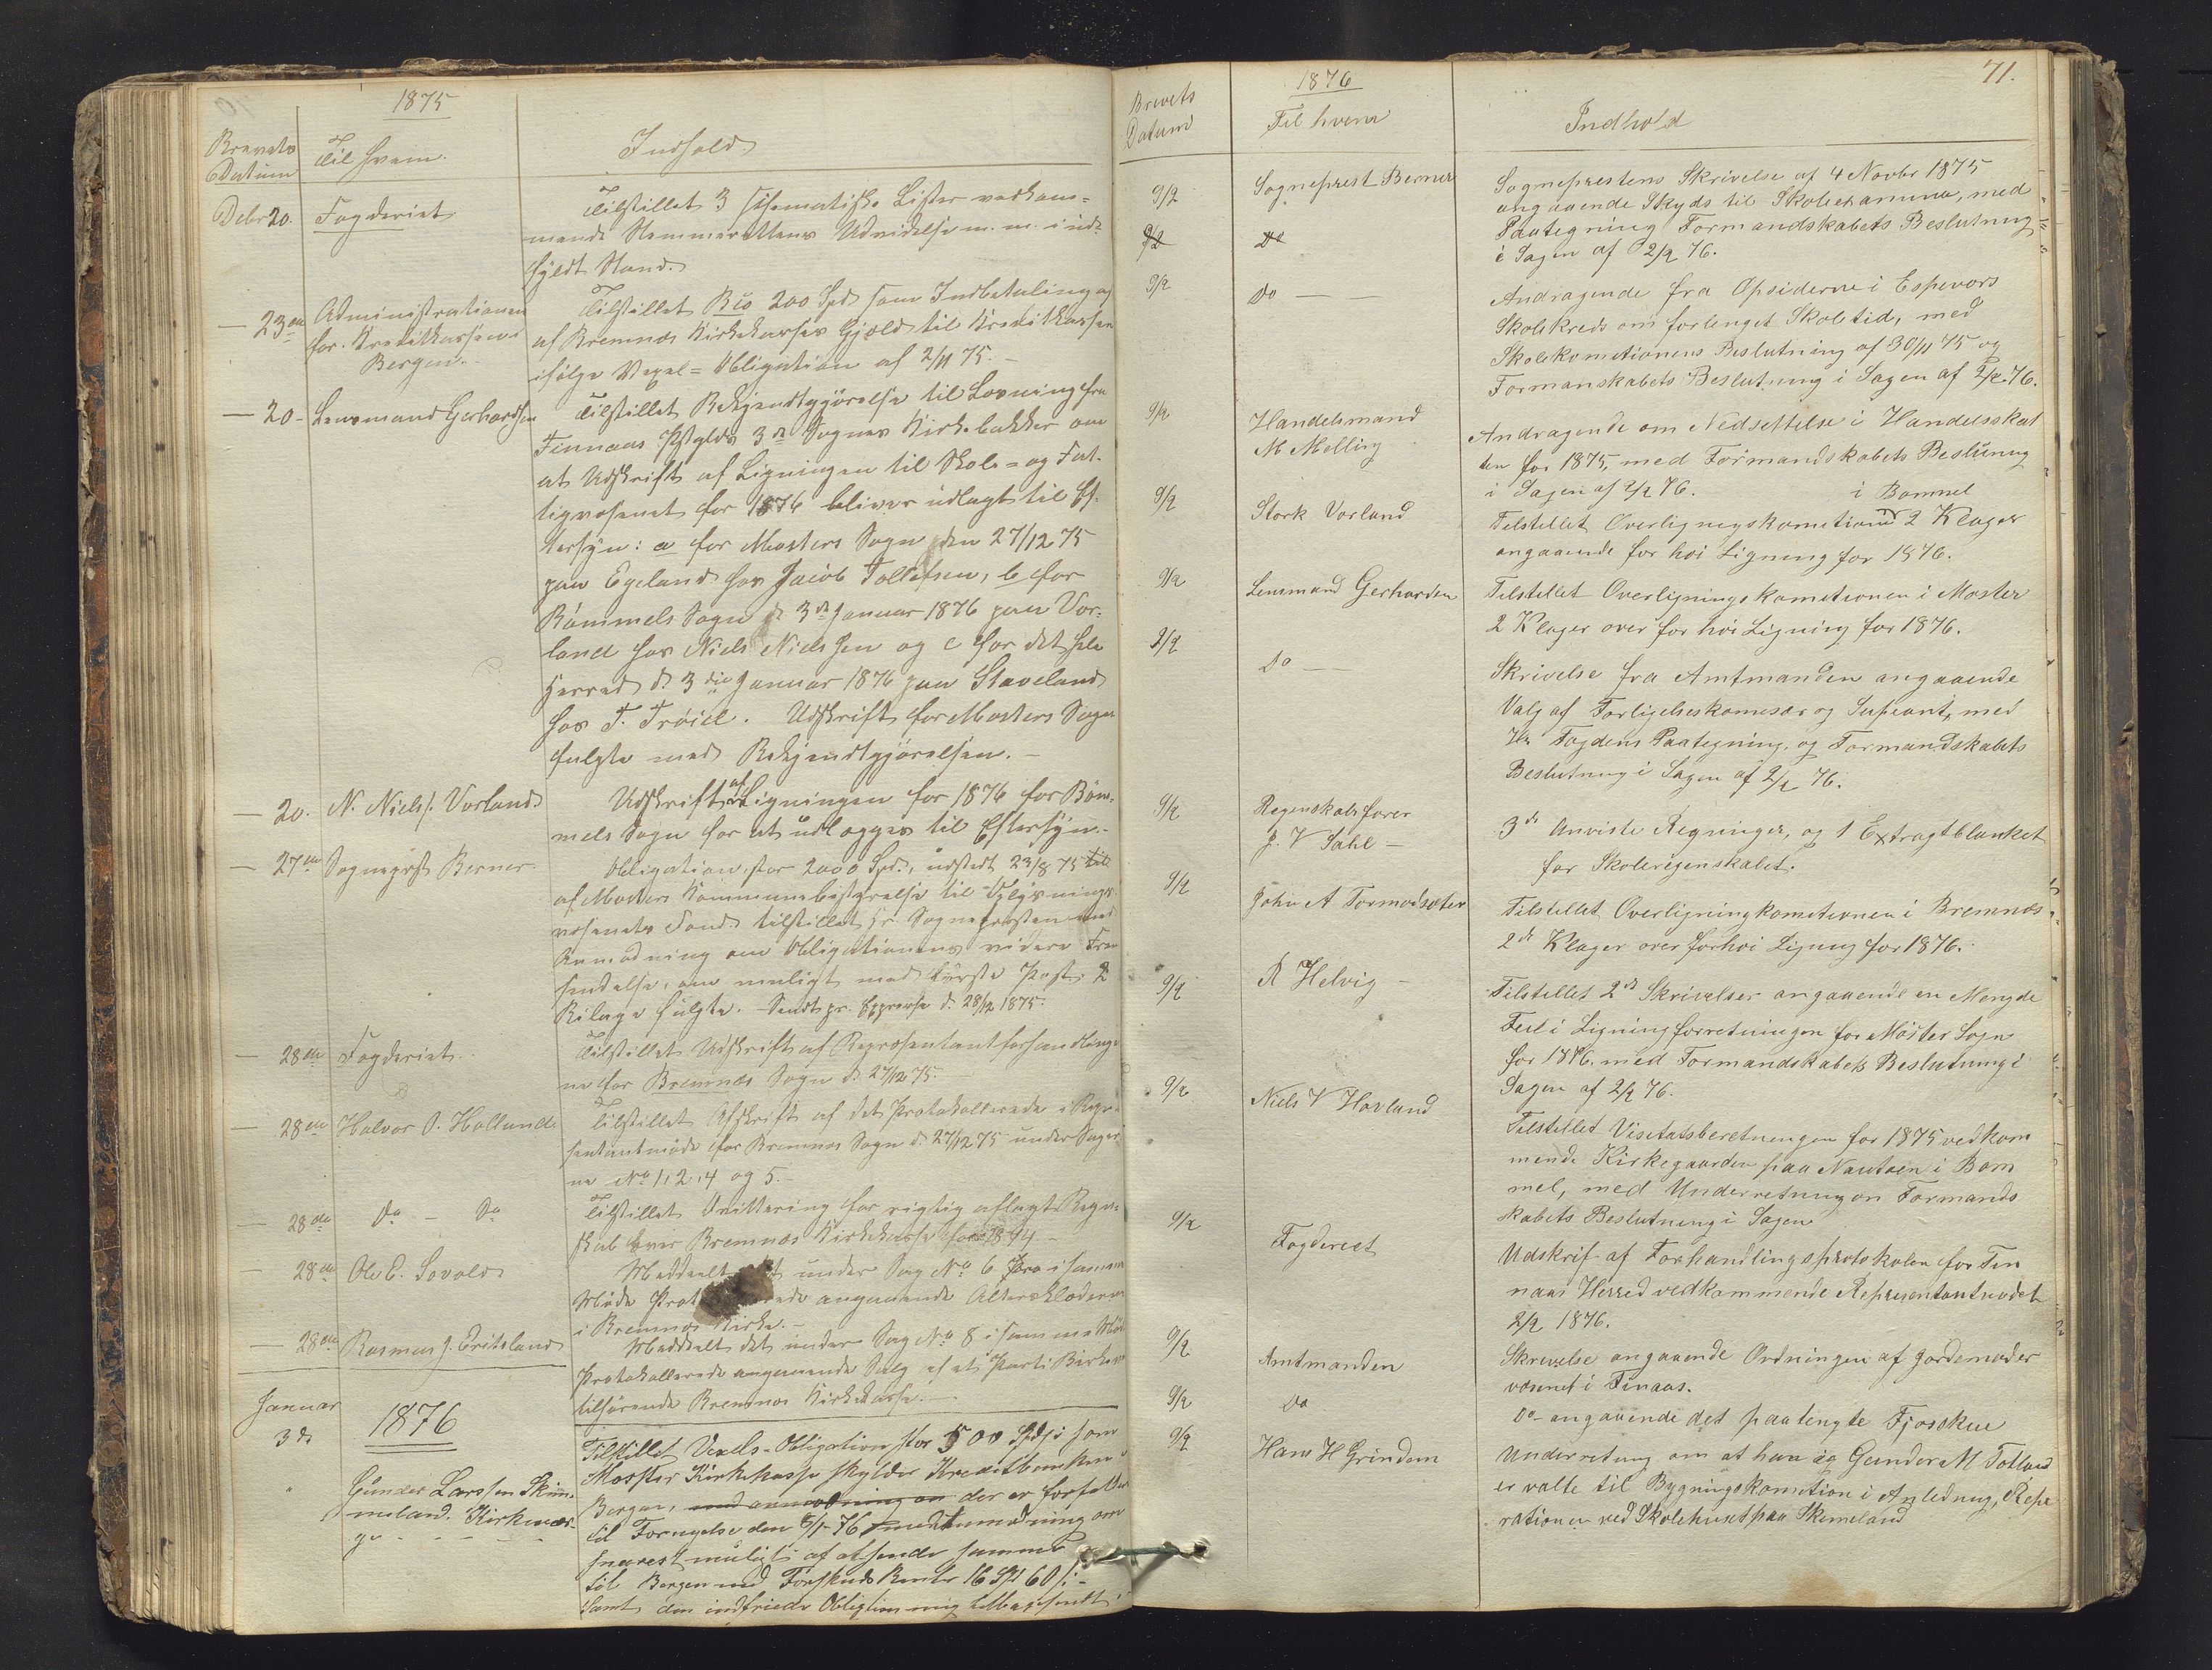 1875
Brevets
Datum
Til hvem.
Indhold.
Debr 20.
Fogderiet
Tilstillet 3 schematiske Lister vedkom-
mende Stemmerettens Udvidelse m. m. i ud-
fyldt Stand.
— 23de
Administrationen
for Kreditkassen i
Bergen.
Tilstillet 200 Spd som Indbetaling
af Bremnæs Kirkekasses Gjæld til Kreditkassen
ifølge Vexel-Obligation af 2/11 75. –
— 20 –
Lensmand Gerhardsen
Tilstillet Bekjendtgjørelse til Læsning fra
Finnaas Pstglds 3de Sognes Kirkebakker om
at Udskrift af Ligningen til Skole- og Fat-
tigvæsenet for 1876 bliver udlagt til Ef-
tersyn: a for Mosters Sogn den 27/12 75
paa Egeland hos Jacob Tollefsen, b for
Bømmels Sogn d. 3de Januar 1876 paa Vor-
land hos Niels Nielssen og c for det hele
Herred d. 3die Januar 1876 paa Staveland
hos T. Trøiel. Udskrift for Mosters Sogn
fulgte med Bekjendtgjørelsen. –
— 20.
N. Niels. Vorland
Udskrift af Ligningen for 1876 for Bøm-
mels Sogn for at udlægges til Eftersyn. –
— 27de
Sogneprst Berner
Obligation stor 2000 Spd., udstedt 23/8 75
af Mosters Kommunebestyrelse til Oplysnings-
væsenets Fond tilstillet Hr. Sognepresten med
Anmodning om Obligationens videre Frem
sendelse, om muligt med første Post; 2
Bilage fulgte. – Sendt pr. Expresse d. 28/12 1875.
— 28de
Fogderiet.
Tilstillet Udskrift af Repræsentantforhandlinger
ne for Bremnæs Sogn d. 27/12 75.
— 28de
Halvor O. Hollund
Tilstillet Afskrift af det Protokollerede i Repræ-
sentantmøde for Bremnæs Sogn d. 27/12 75 under Sager-
ne No 1, 2, 4 og 5. –
— 28de
do – do
Tilstillet Qvittering for rigtig aflagt Regn-
skab over Bremnæs Kirkekasse for 1874 –
— 28de
Ole E. Sovold
Meddelt under Sag No 6 i samme
Møde angaaende Alterklæderne
i Bremnæs Kirke. –
— 28de
Rasmus J. Eritsland
Meddelt det under Sag No 8 i samme Møde
Protokollerede angaaende Salg af et Parti
tilhørende Bremnæs Kirkekasse.
Januar
3de
1876
Gunder Larssen Skim-
meland. Kirkevær-
ge
Tilstillet Vexels-Obligation stor 500 Spd som
Moster Kirkekasse skylder Kreditbanken i
Bergen, med anmodning om der er forfalden
til Fornyelse den 5/1 76 med anmodning om
snarest muligt af at sende samme
til Bergen med Forskuds Renter 16 Spd 60 s: –
Samt den indfriede Obligtion mig tilbagesendt
71.
1876
Brevets
Datum
Til hvem
Indhold
9/2
Sogneprest Berner
Sogneprestens Skrivelse af 4 Novbr 1875
angaaende Skyds til Skoleexamina, med
Paategning Formandskabets Beslutning
i Sagen af 2/2 76.
9/2
Do
9/2
Do — —
Andragende fra Opsiderne i Espevors
Skolekreds om forlenget Skoletid, med
Skolekomitionens Beslutning af 30/11 75 og
Formanskabets Beslutning i Sagen af 2/2 76.
9/2
Handelsmand
M Melling
Andragende om Nedsettelse i Handelsskat
ten for 1875, med Formandskabets Beslunng
i Sagen af 2/2 76.
9/2
Stork Vorland
i Bømmel
Tilstellet Overligningskomitionen 2 Klager
angaaende for høi Ligning for 1876.
9/2
Lensmand Gerhardsen
Tilstellet Overlignings komitionen i Moster
2 Klager over for høi Ligning for 1876.
2/2
Do —
Skrivelse fra Amtmanden angaaende
Valg af Forligelseskomesær og Supeant, med
Hr Fogdens Paategning, og Formandskabets
Beslutning i Sagen af 2/2 76.
9/2
Regnskabsfører
J. V Sahl –
3de Anviste Regninger, og 1 Extragtblanket
for Skoleregenskabet.
9/2
John A Tormodsæter
Tilstellet Overligningkomitionen i Bremnæs
2de Klager over forhøi Ligning for 1876.
9/2
R Helvig –
Tilstellet 2de Skrivelser angaaende en Mengde
Feil i Ligning forretningen for Møster Sogn
for 1876. med Formandskabets Beslutning i
Sagen af 2/2 76.
9/2
Niels V Havland
Tilstellet Visitatsberetningen for 1875 vedkom
mende Kirkegaarden paa Nautøen i Bøm
mel, med Underretning om Formands
kabets Beslutning i Sagen
9/2
Fogderiet
Udskrif af Forhandlingsprotokolen for Fin
naas Herred vedkommende Representantmødet
2/2 1876.
9/2
Amtmanden
Skrivelse angaaende Ordningen af Jordemoder
væsenet i Finaas.
9/2
Do
Do – angaaende det paatengte Fjosskue
9/2
Hans H Grindem
Underretning om at han og Gunder M Totland
er valte til Bygningskomition i Anledning Repe
rationen ved Skolehuset paa Skimeland